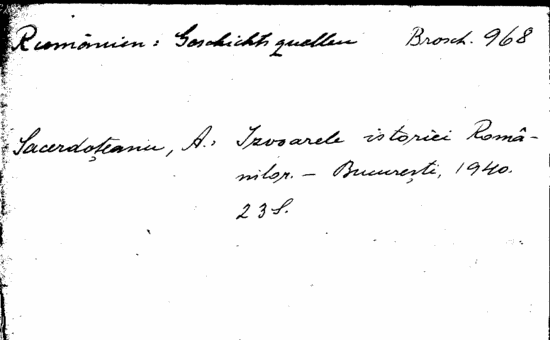 Rumänien: Geschichtsquellen Brosch. 968
Sacerdoţeanu, A.: Izvoarele istoriei Româ-
nilor. – Bucureşti, 1940.
23 S.